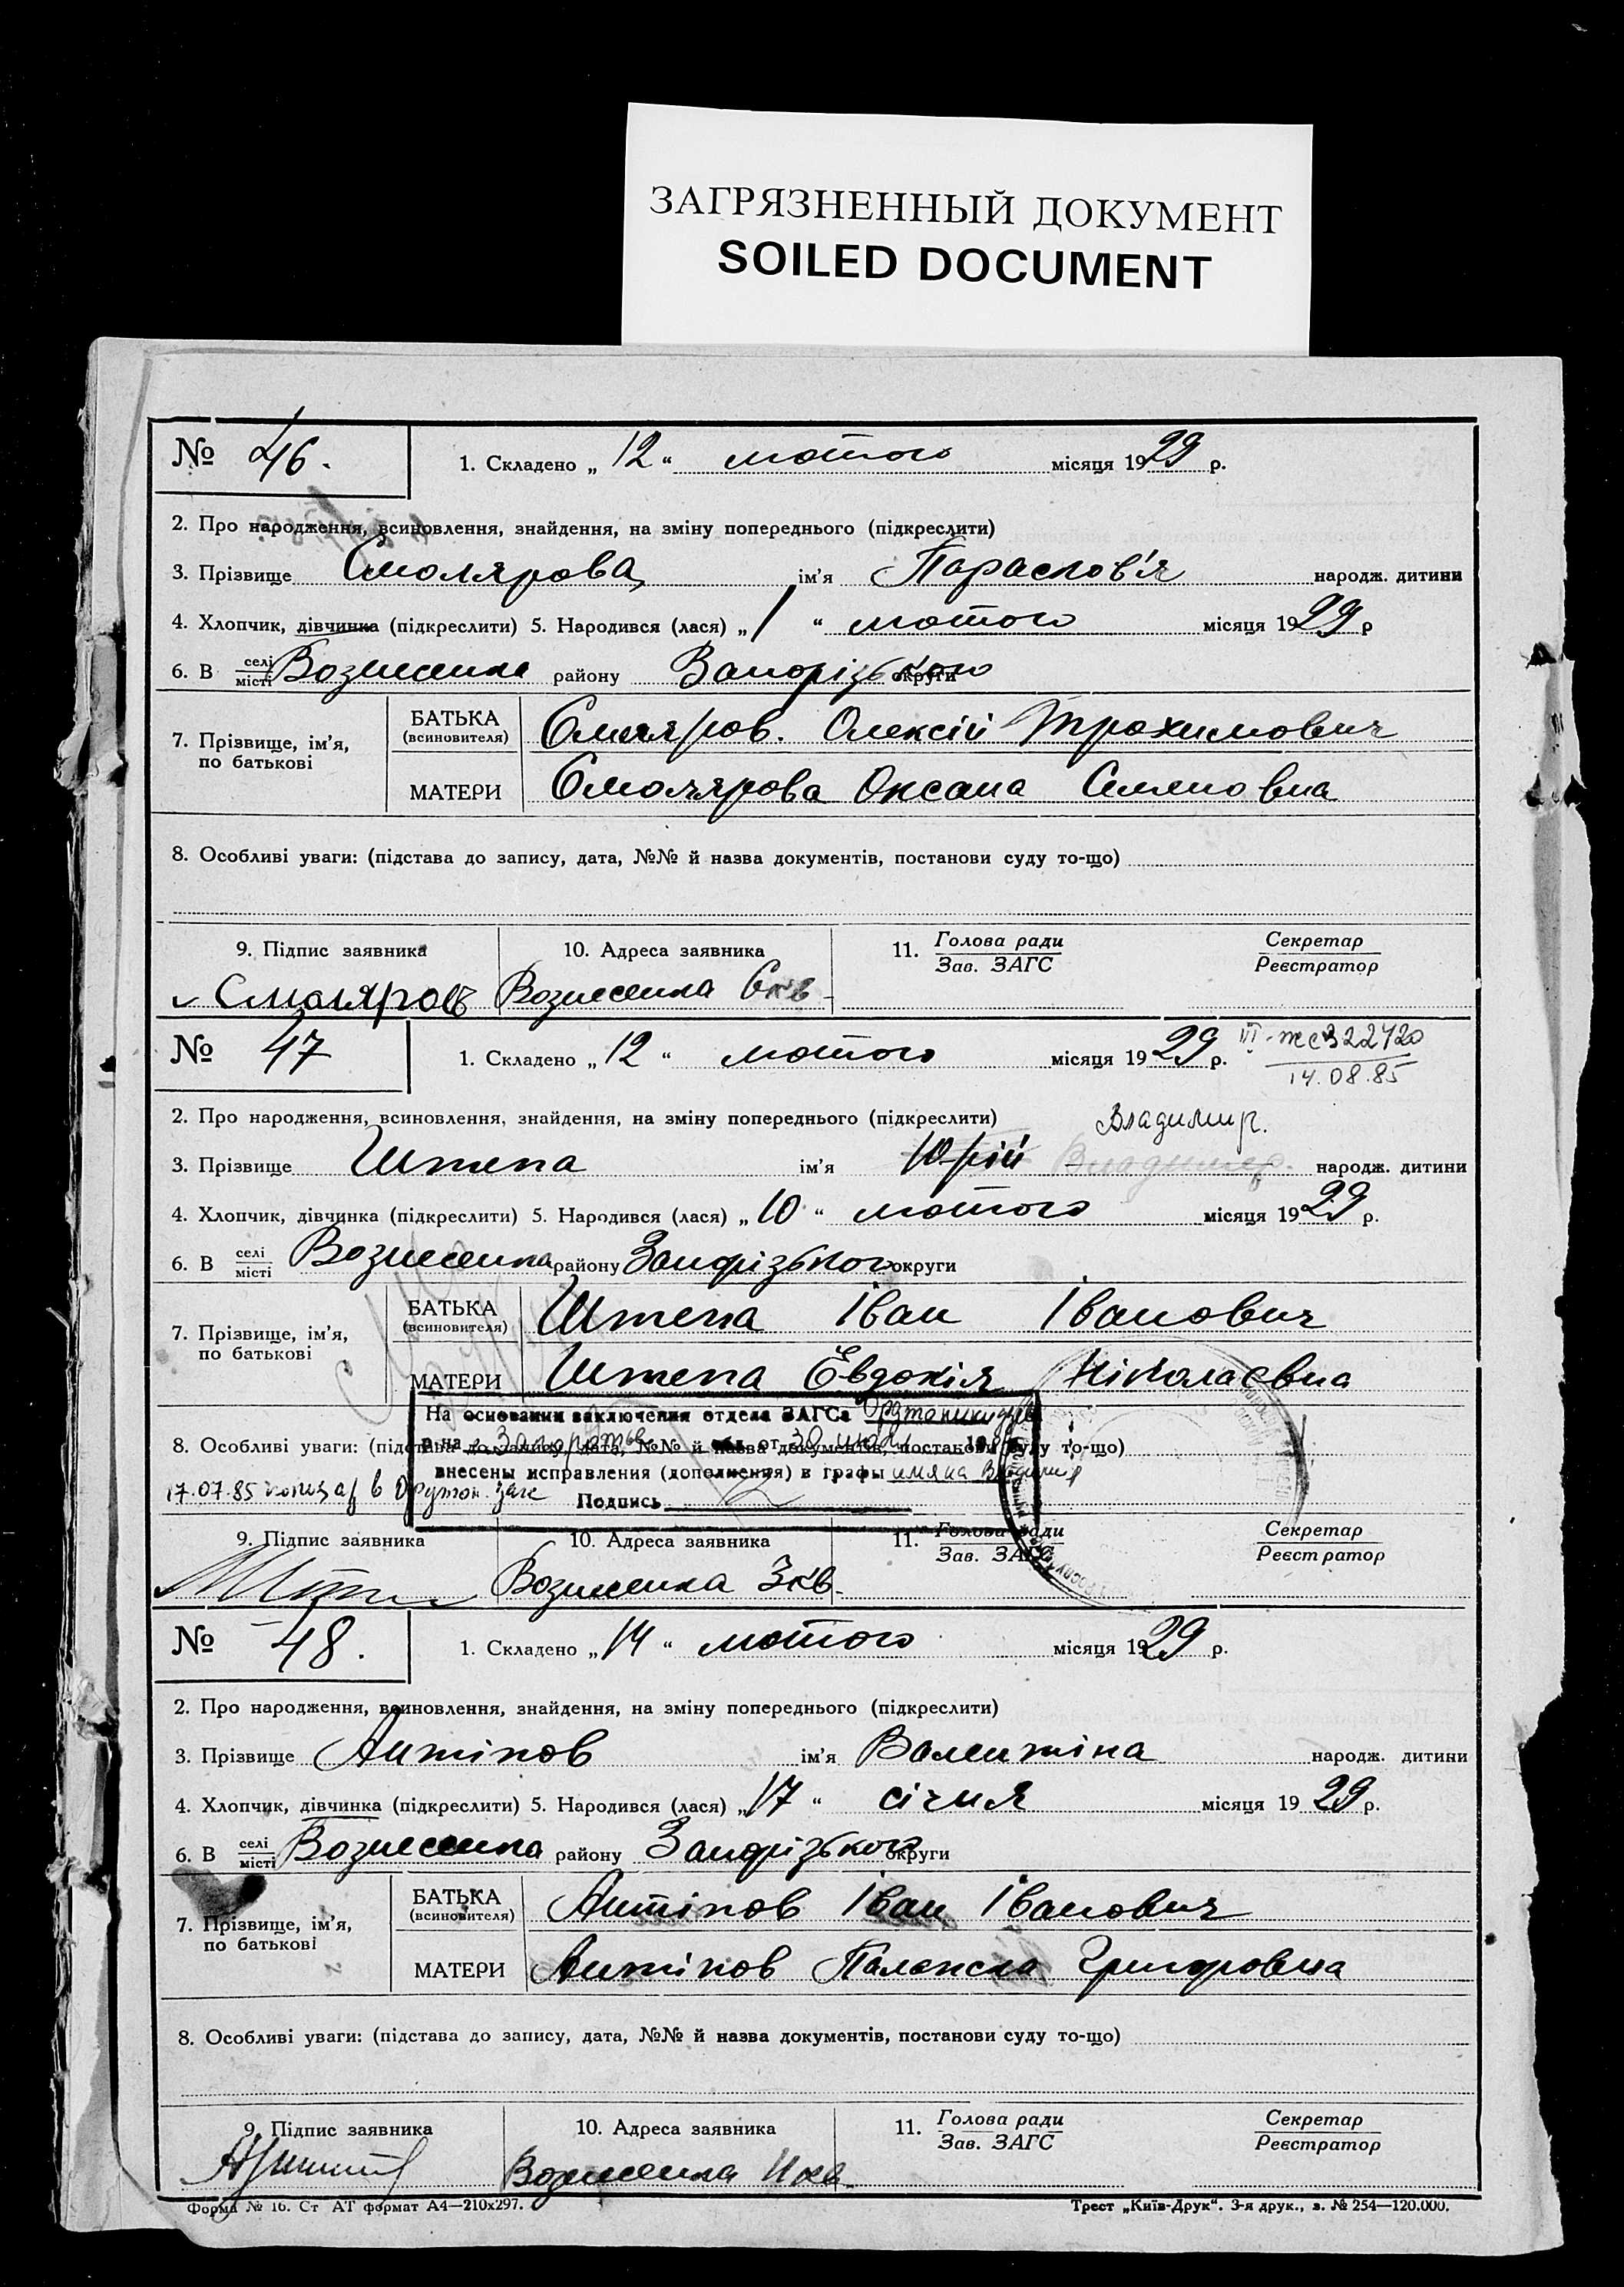 ЗАГРЯЗНЕННЫЙ ДОКУМЕНТ
SOILED DOCUMENT
№ 46. 1. Складено „ 12 “ лютого місяця 1929 р.
2. Про народження, всиновлення, знайдення, на зміну попереднього (підкреслити)
3. Прізвище Смолярова ім’я Парасков'я народж. дитини
4. Хлопчик, дівчинка (підкреслити) 5. Народився (лася) „ 1 “ лютого місяця 1929 р
6. В селі/місті Вознесенка району Запорізького округи
7. Прізвище, ім’я, по батькові
БАТЬКА (всиновителя) Смоляров. Олексій Трохимович
МАТЕРИ Смолярова Оксана Семеновна
8. Особливі уваги: (підстава до запису, дата, №№ й назва документів, постанови суду то-що)
9. Підпис заявника 10. Адреса заявника 11. Голова ради/Зав. ЗАГС Секретар/Реєстратор
Смоляров Вознесенка 6 кв
№ 47 1. Складено „ 12 “ лютого місяця 1929 р. III-жс 322420
14.08.85
2. Про народження, всиновлення, знайдення, на зміну попереднього (підкреслити) Владимир.
3. Прізвище Штепа ім’я Юрій Владимир. народж. дитини
4. Хлопчик, дівчинка (підкреслити) 5. Народився (лася) „ 10 “ лютого місяця 1929 р.
6. В селі/місті Вознесенка району Запорізького округи
7. Прізвище, ім’я, по батькові
БАТЬКА (всиновителя) Штепа Іван Іванович
МАТЕРИ Штепа Евдокія Ніколаєвна
На основании заключения отдела ЗАГСа Орджоникидзев
р-на г. Запорожье обл. от 30 июля 1985
8. Особливі уваги: (підстава до запису, дата, №№ й назва документів, постанови суду то-що)
внесены исправления (дополнения) в графы имя на Владимир
17.07.85 в загс
Подпись
9. Підпис заявника 10. Адреса заявника 11. Голова ради/Зав. ЗАГС Секретар/Реєстратор
Вознесенка 3 кв.
№ 48. 1. Складено „ 14 “ лютого місяця 1929 р.
2. Про народження, всиновлення, знайдення, на зміну попереднього (підкреслити)
3. Прізвище Антіпов ім’я Валентіна народж. дитини
4. Хлопчик, дівчинка (підкреслити) 5. Народився (лася) „ 17 “ січня місяця 1929 р.
6. В селі/місті Вознесенка району Запорізького округи
7. Прізвище, ім’я, по батькові
БАТЬКА (всиновителя) Антіпов Іван Іванович
МАТЕРИ Антіпов Григоровна
8. Особливі уваги: (підстава до запису, дата, №№ й назва документів, постанови суду то-що)
9. Підпис заявника 10. Адреса заявника 11. Голова ради/Зав. ЗАГС Секретар/Реєстратор
Вознесенка кв.
Форма № 16. Ст АТ формат А4—210х297. Трест „Київ-Друк“. 3-я друк., з. № 254—120.000.